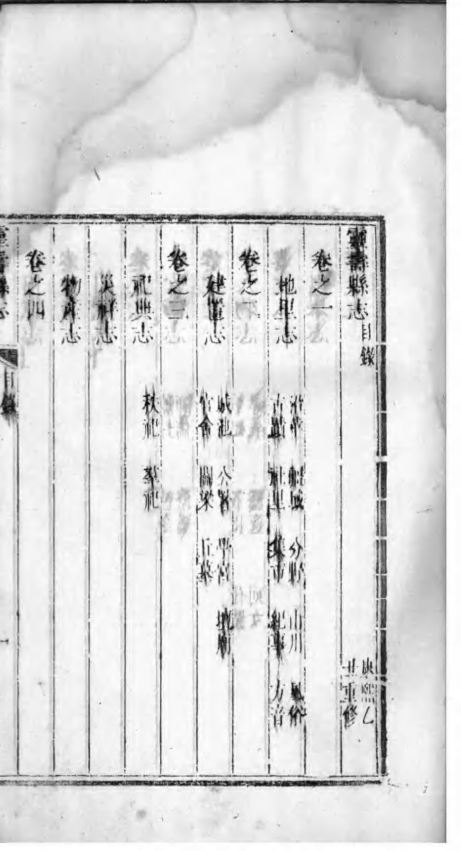 靈壽縣志目錄
康熙乙丑重修
卷之一
地里志
沿革 疆域 分野 山川 風俗
古蹟 社里 集市 紀事 方音
卷之二
建置志
城池 公署 學宮 壇廟
舍 關梁 丘墓
卷之三
祀典志
秩祀 羣祀
災祥志
物產志
卷之四
靈壽縣志
目錄
一